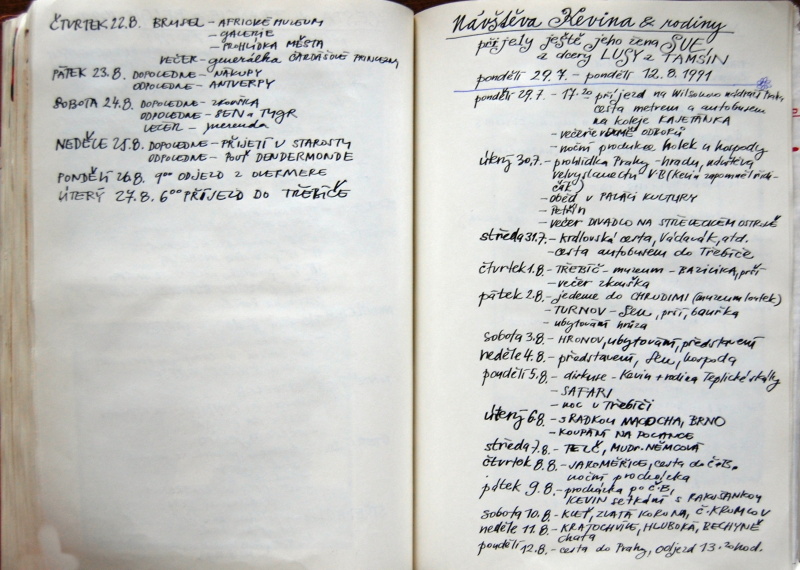 ČTVRTEK 22.8. BRUSEL - AFRICKÉ MUSEUM
- GALERIE
- PROHLÍDKA MĚSTA
VEČER - generálka ČARDÁŠOVÉ PRINCEZNY
PÁTEK 23.8. DOPOLEDNE - NÁKUPY
ODPOLEDNE - ANTVERPY
SOBOTA 24.8. DOPOLEDNE - ZKOUŠKA
ODPOLEDNE - SEN a TYGR
VEČER - merenda
NEDĚLE 25.8. DOPOLEDNE - PŘIJETÍ U STAROSTY
ODPOLEDNE - POUŤ DENDERMONDE
PONDĚLÍ 26.8. 9⁰⁰ ODJEZD Z OVERMERE
ÚTERÝ 27.8. 6⁰⁰ PŘÍJEZD DO TŘEBÍČE
Návštěva Kevina & rodiny
přijely ještě jeho žena SUE
a dcery LUSY a TAMSIN
pondělí 29.7. - pondělí 12.8.1991
pondělí 29.7. - 17.20 příjezd na Wilsonovo nádraží Praha,
cesta metrem a autobusem
na koleje KAJETÁNKA
- večeře v DOMĚ ODBORŮ
- noční produkce holek u hospody
úterý 30.7. - prohlídka Prahy - hrady, návštěva
velvyslanectví VB (Kevin zapomněl řidi-
čák)
- oběd v PALÁCI KULTURY
- PETŘÍN
- večer DIVADLO NA STŘELECKÉM OSTROVĚ
středa 31.7. - Královská cesta, Václavák, atd.
- cesta autobusem do Třebíče
čtvrtek 1.8. - TŘEBÍČ - muzeum - BAZILIKA, prší
- večer zkouška
pátek 2.8. - jedeme do CHRUDIMI (muzeum loutek)
- TURNOV - Sen, prší, bouřka
- ubytování hrůza
sobota 3.8. - HRONOV, ubytování, představení
neděle 4.8. - představení, Sen, hospoda
pondělí 5.8. - diskuse - Kevin + rodina Teplické skály
- SAFARI
- noc v Třebíči
úterý 6.8. - S RADKOU MACOCHA, BRNO
- KOUPÁNÍ NA POLANCE
středa 7.8. - TELČ, MUDr. NĚMCOVÁ
čtvrtek 8.8. - JAROMĚŘICE, cesta do Č.B.
noční procházka
pátek 9.8. - procházka po Č.B,
KEVIN setkání s RAKUŠANKOU
sobota 10.8. - KLEŤ, ZLATÁ KORUNA, Č. KRUMLOV
neděle 11.8. - KRATOCHVÍLE, HLUBOKÁ, BECHYNĚ
chata
pondělí 12.8. - cesta do Prahy, odjezd 13.20 hod.